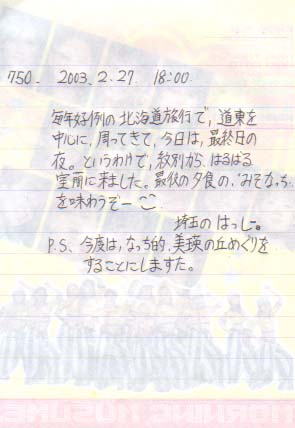 750. 2003. 2. 27. 18:00.
毎年好例の北海道旅行で、道東を
中心に、周ってきて、今日は、最終日の
夜。というわけで、紋別から、はるばる
室蘭に来ました。最後の夕食の、「みそなっち」
を味わうぞー
埼玉の はっしー。
P.S、今度は、なっち的、美瑛の丘めぐりを
することにしますた。
MORNING MUSUME